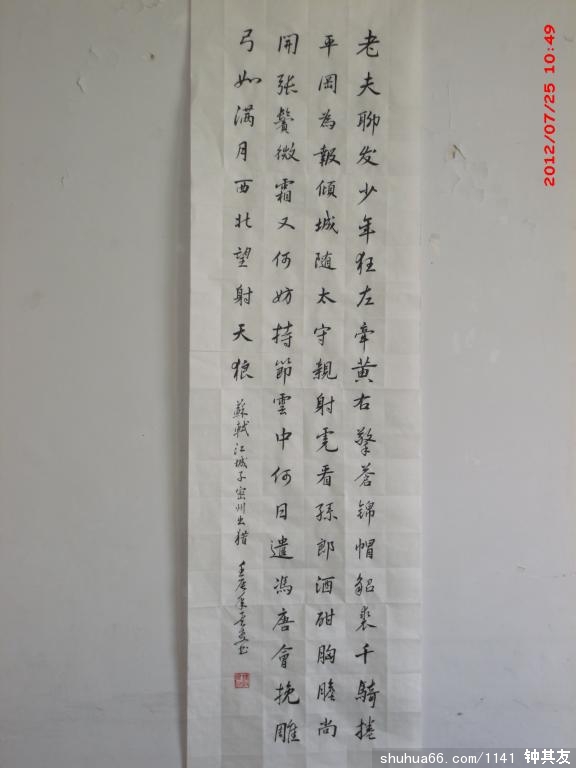 老夫聊发少年狂左牵黄右擎苍锦帽貂裘千騎捲
平岡為報傾城随太守親射虎看孫郎酒酣胸膽尚
開張鬢微霜又何妨持節雲中何日遣馮唐會挽雕
弓如满月西北望射天狼
蘇軾江城子密州出猎
壬辰年
2012/07/25 10:49
shuhua66.com/1141 钟其友